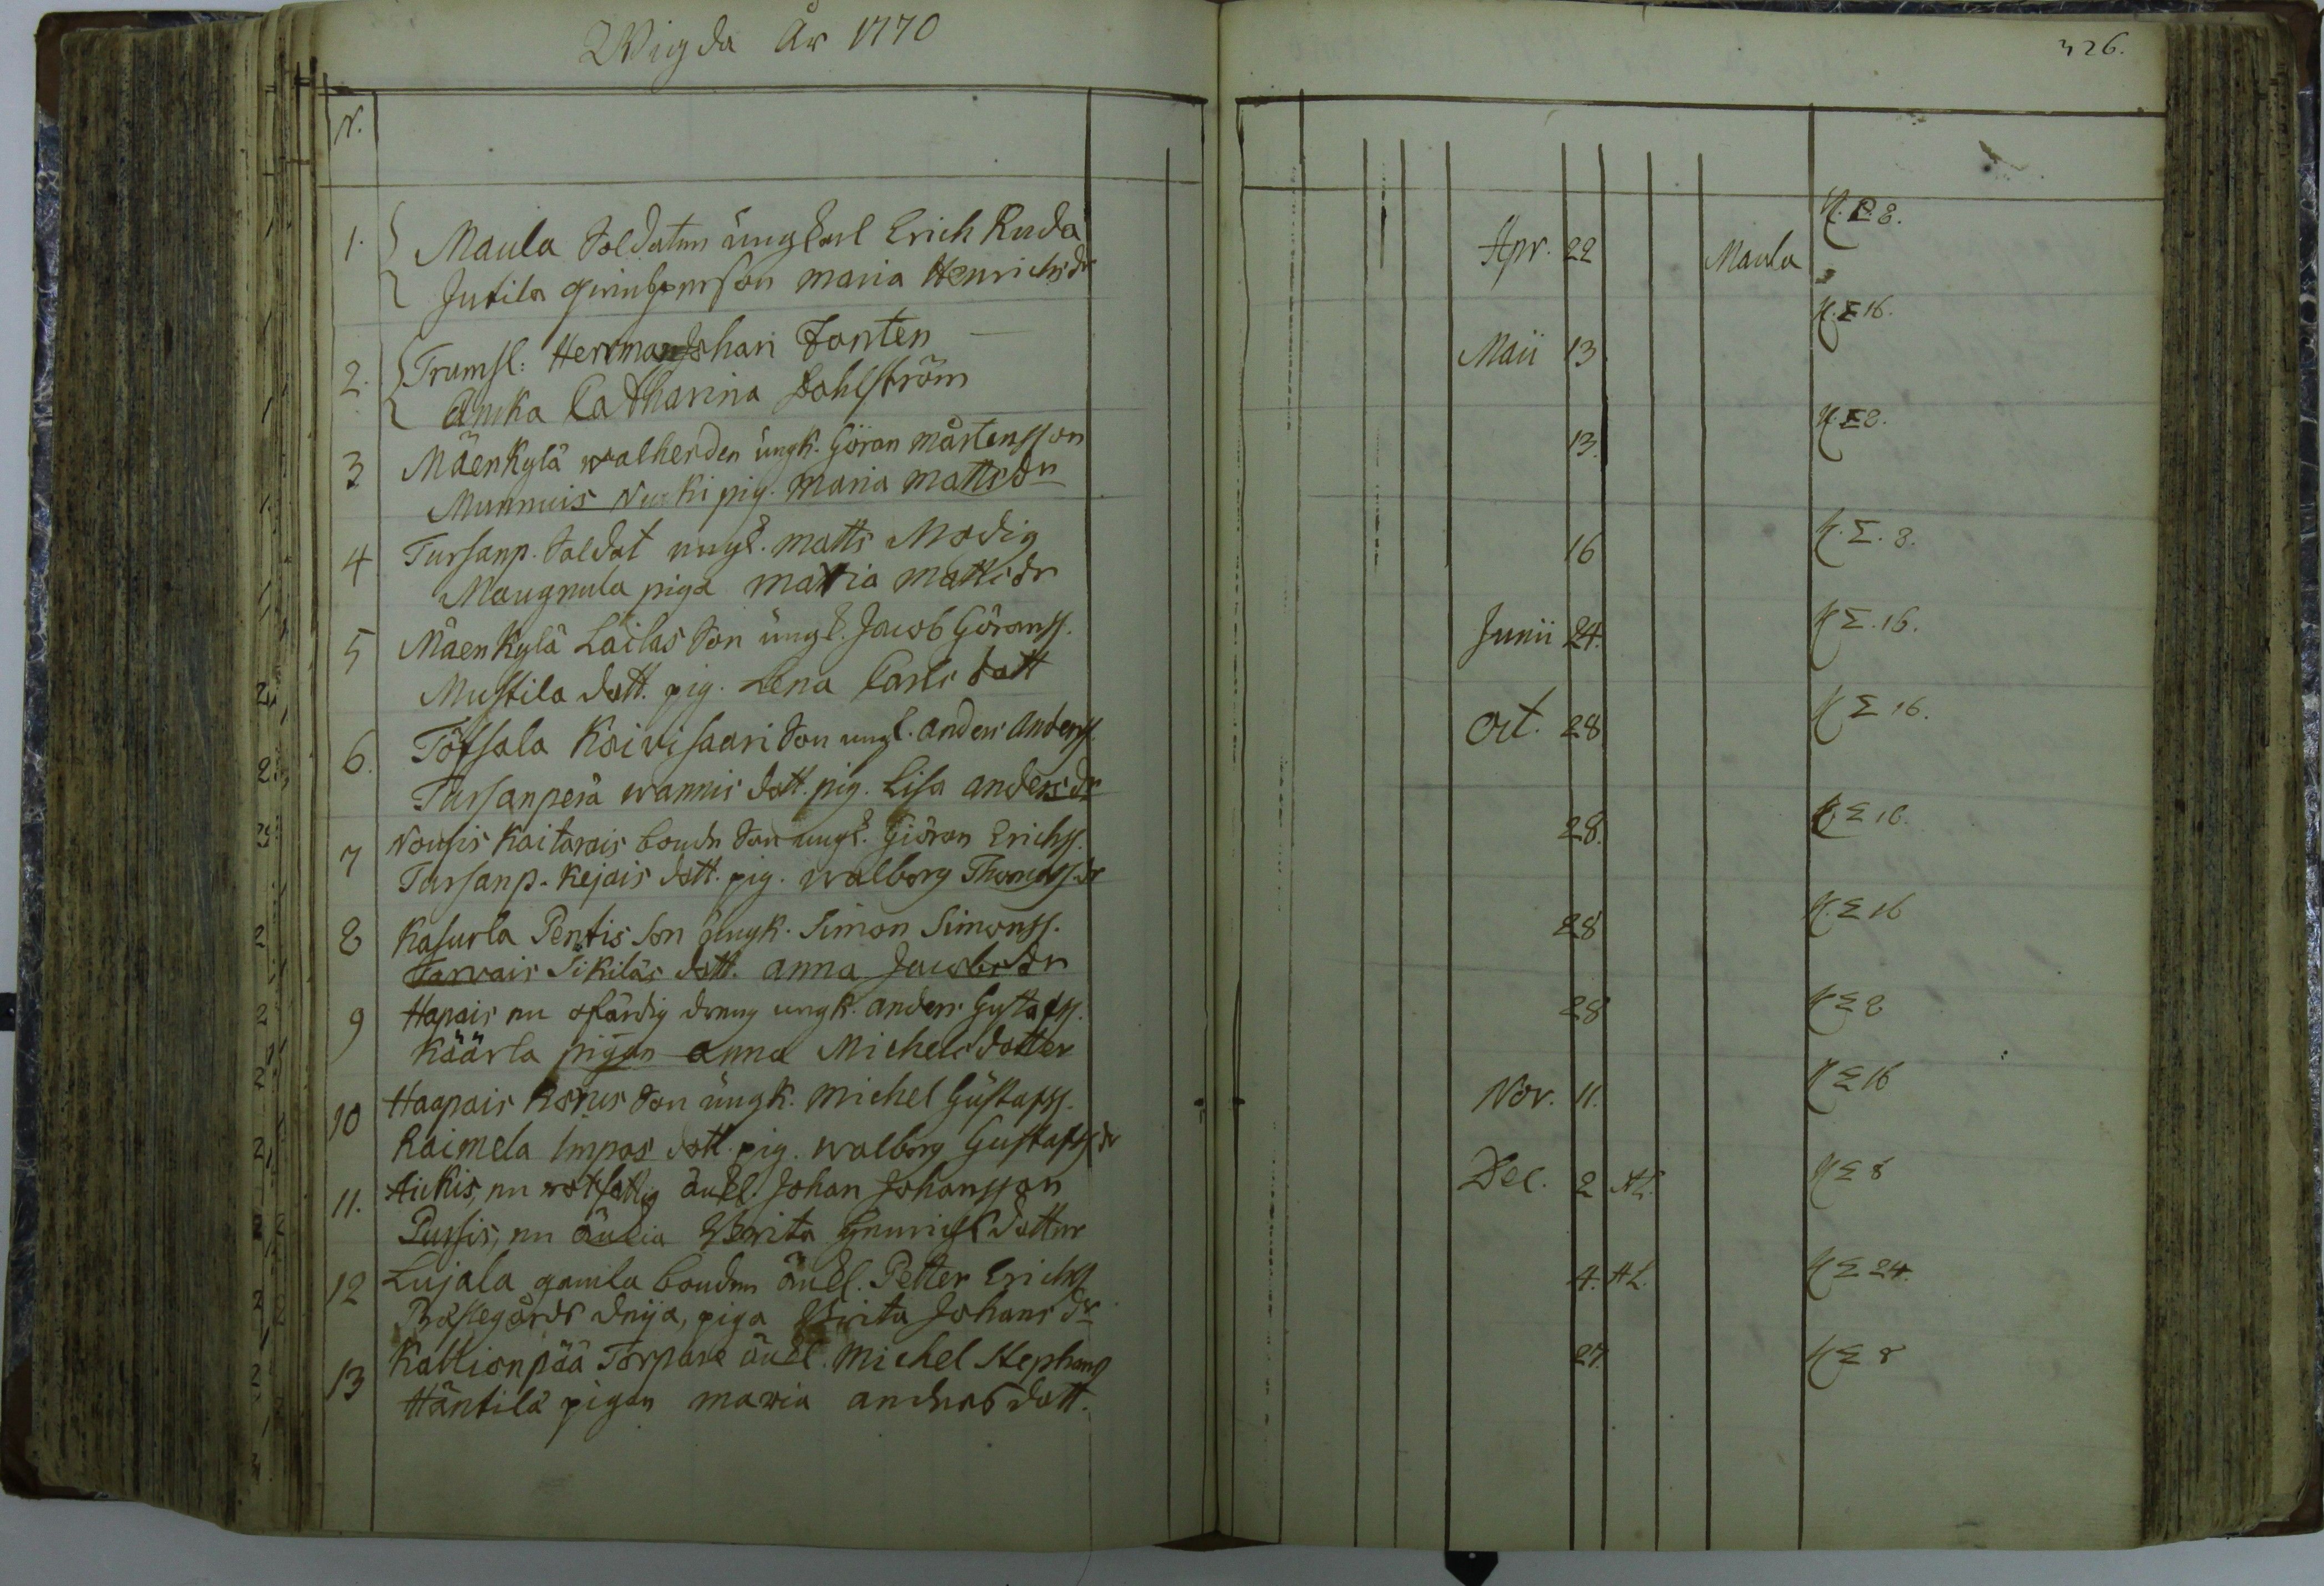 Wigda År 1770
326.
N.
1. Maula Soldaten ungkarl Erich Ruda Apr. 22 Maula K. Σ 8.
Jutila qvinsperson Maria Henrichsdr
2. Trumsl: Herrman Johan Tonten Maii 13 K. Σ 16.
Anika Catharina Dahlström
3 Mäenkylä walherden ungk. Göran Mårtensson 13. K. Σ 8.
Munnuis Nurki pig. Maria Mattsdr
4 Tursanp. Soldat ungk. Matts Modig 16 K. Σ. 8.
Maugnula piga Maria Mattsdr
5 Mäenkylä Lailas Son ungk. Jacob Göranss. Junii 24. K Σ. 16.
Mustila dott. pig. Lena Carls dott
6. Töfsala Koivisaari Son ungk. Anders Anderss. Oct. 28 K Σ 16.
Tursanperä wannis dott. pig. Lisa Andersdr
7 Nousis Kaitarais bonde Son ungk. Giöran Erichss. 28. K Σ 16.
Tursanp. Kejais dott. pig. Walborg Thomassdr
8 Kasurla Pentis Son ungk. Simon Simonss. 28 K. Σ 16
Tarvais Sikiläs dott. Anna Jacobsdr
9 Hapais en ofärdig dreng ungk. Anders Gustafss. 28 K Σ 8
Käärla pigan Anna Michelsdotter
10 Haapais Kornis Son ungk. Michel Gustafss. Nov. 11. K Σ 16
Raimela Impas dott. pig. Walborg Gustafssdr
11. Aickis, en rotfattig änkl. Johan Johansson Dec. 2 AL. K Σ 8
Pursis, en änkia Brita Henrichsdotter
12 Lujala gamla bonden änkl. Petter Erichs 4. AL. K Σ 24.
Prästegårds deija, piga Brita Johansdr
13 Kallionpää Torpare änkl. Michel Stephans 27. K Σ 8
Häntilä pigan Maria Anders dott.